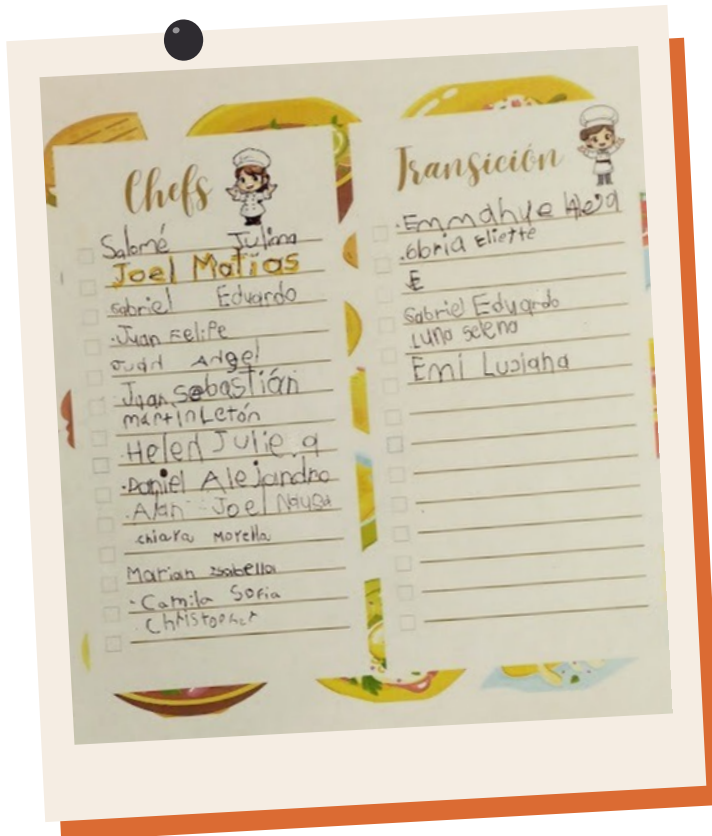 Chefs
Salomé Juliana
Joel Matias
Gabriel Eduardo
.Juan Felipe
Juan Angel
Juan Sebastián
martin Letón
.Helen Julie a
.Daniel Alejandro
.Alan Joel
chiara Morella
Marian Isabella
.Camila Sofia
.Christopher
Transición
.Emmahye
.6bria Eliette
E
Gabriel Eduardo
Luna Selena
Emi Luciana